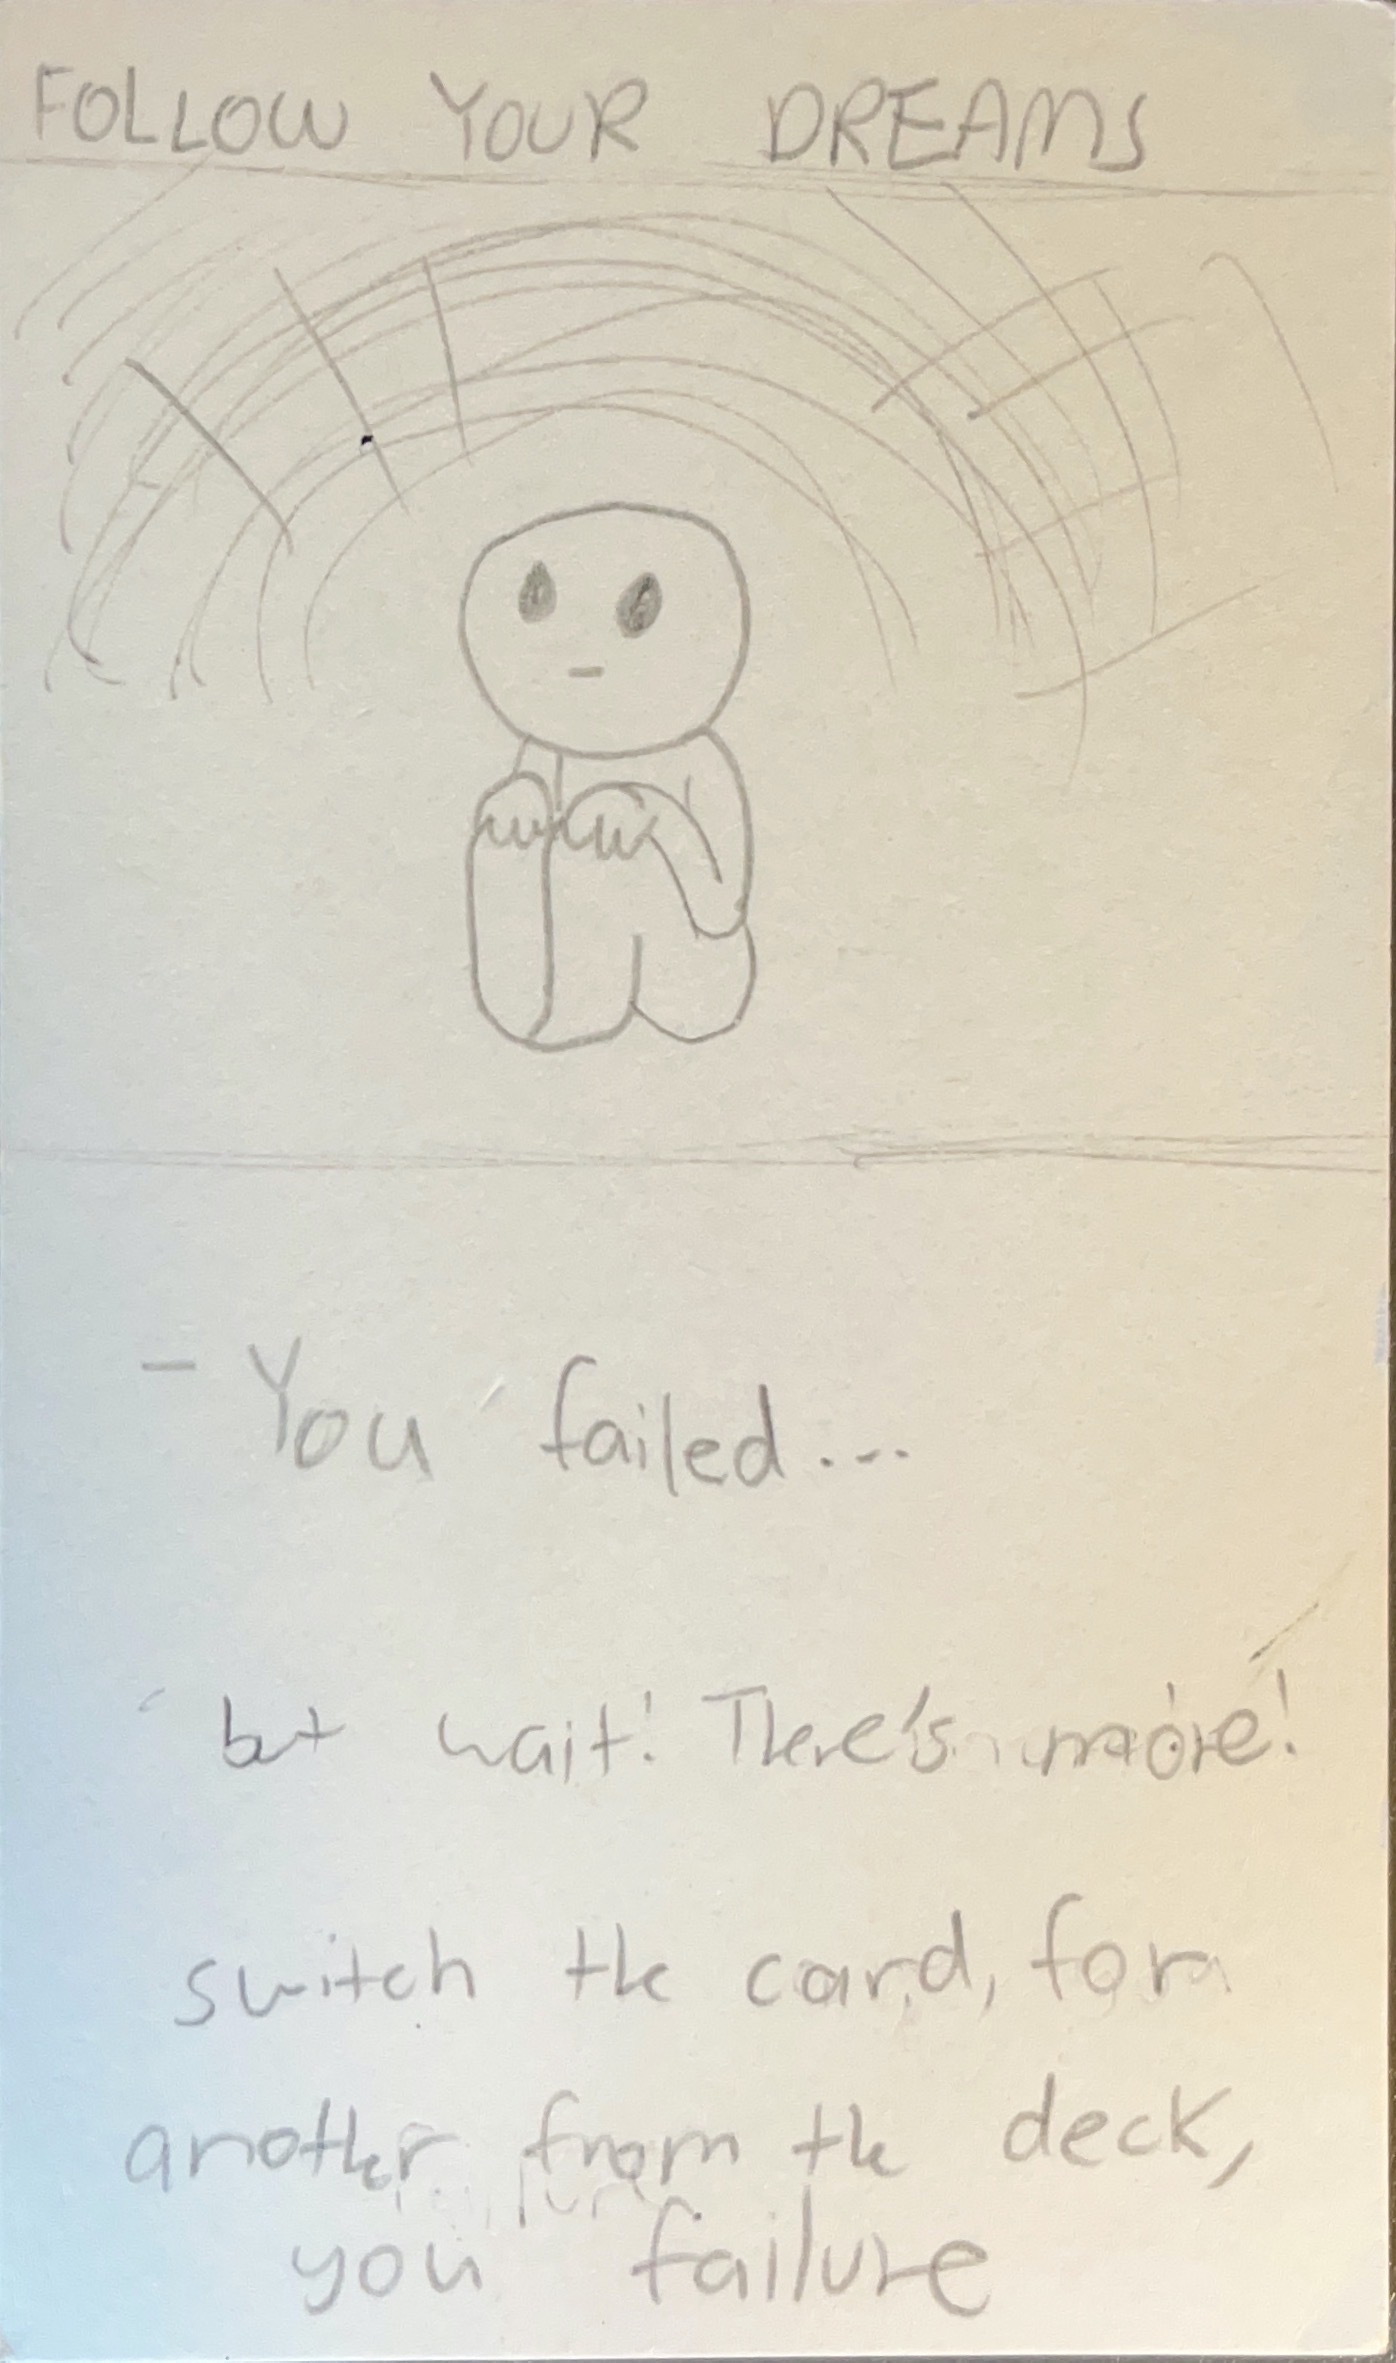 FOLLOW YOUR DREAMS
- You failed...
but wait! There's more!
switch the card, for
another from the deck,
you failure